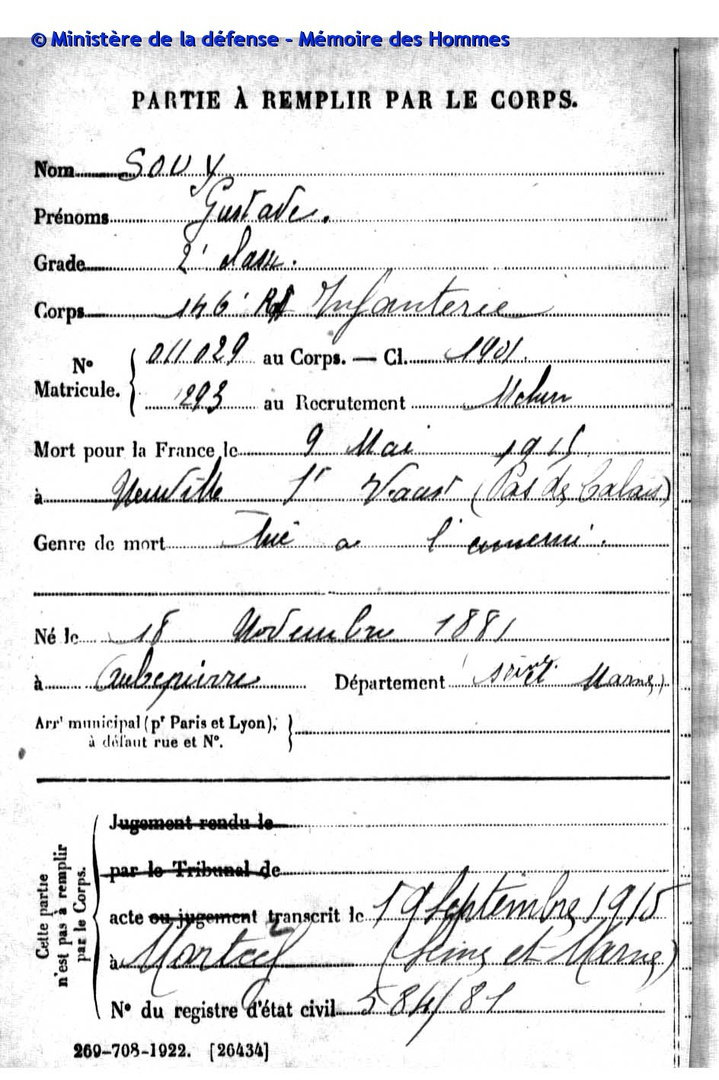 © Ministère de la défense - Mémoire des Hommes
PARTIE À REMPLIR PAR LE CORPS.
Nom SOUY
Prénoms Gustave.
Grade 2e classe.
Corps 146e Rgt Infanterie
No Matricule. 011029 au Corps. — Cl. 1901.
1293 au Recrutement Melun
Mort pour la France le 9 Mai 1915
à Neuville St Vaast (Pas de Calais)
Genre de mort tué a l'ennemi.
Né le 18 Novembre 1881
à Aubepierre Département Seine Marne)
Arrt municipal (pr Paris et Lyon),
à défaut rue et No.
Cette partie n'est pas à remplir par le Corps.
Jugement rendu le
par le Tribunal de
acte ou jugement transcrit le 19 Septembre 1915
à (Seine et Marne)
No du registre d'état civil 584/81
269-708-1922. [26434]